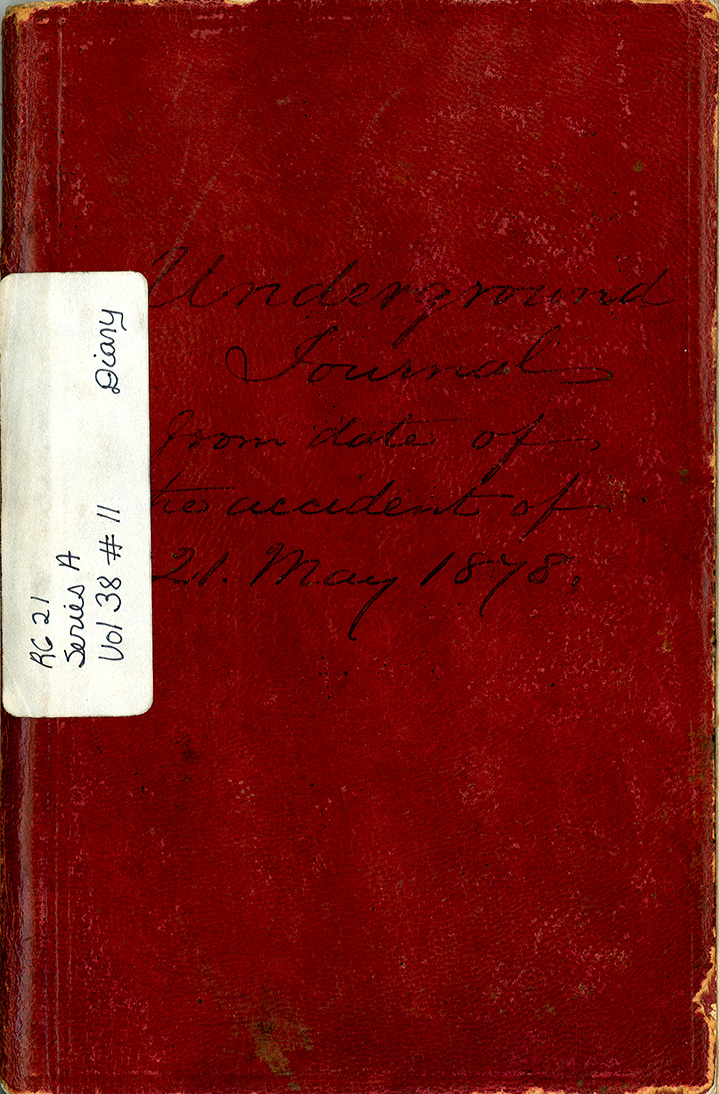 Underground
Journal
from date of
the accident of
21. May 1878.
RG 21
Series A
Vol 38 # 11
Diary